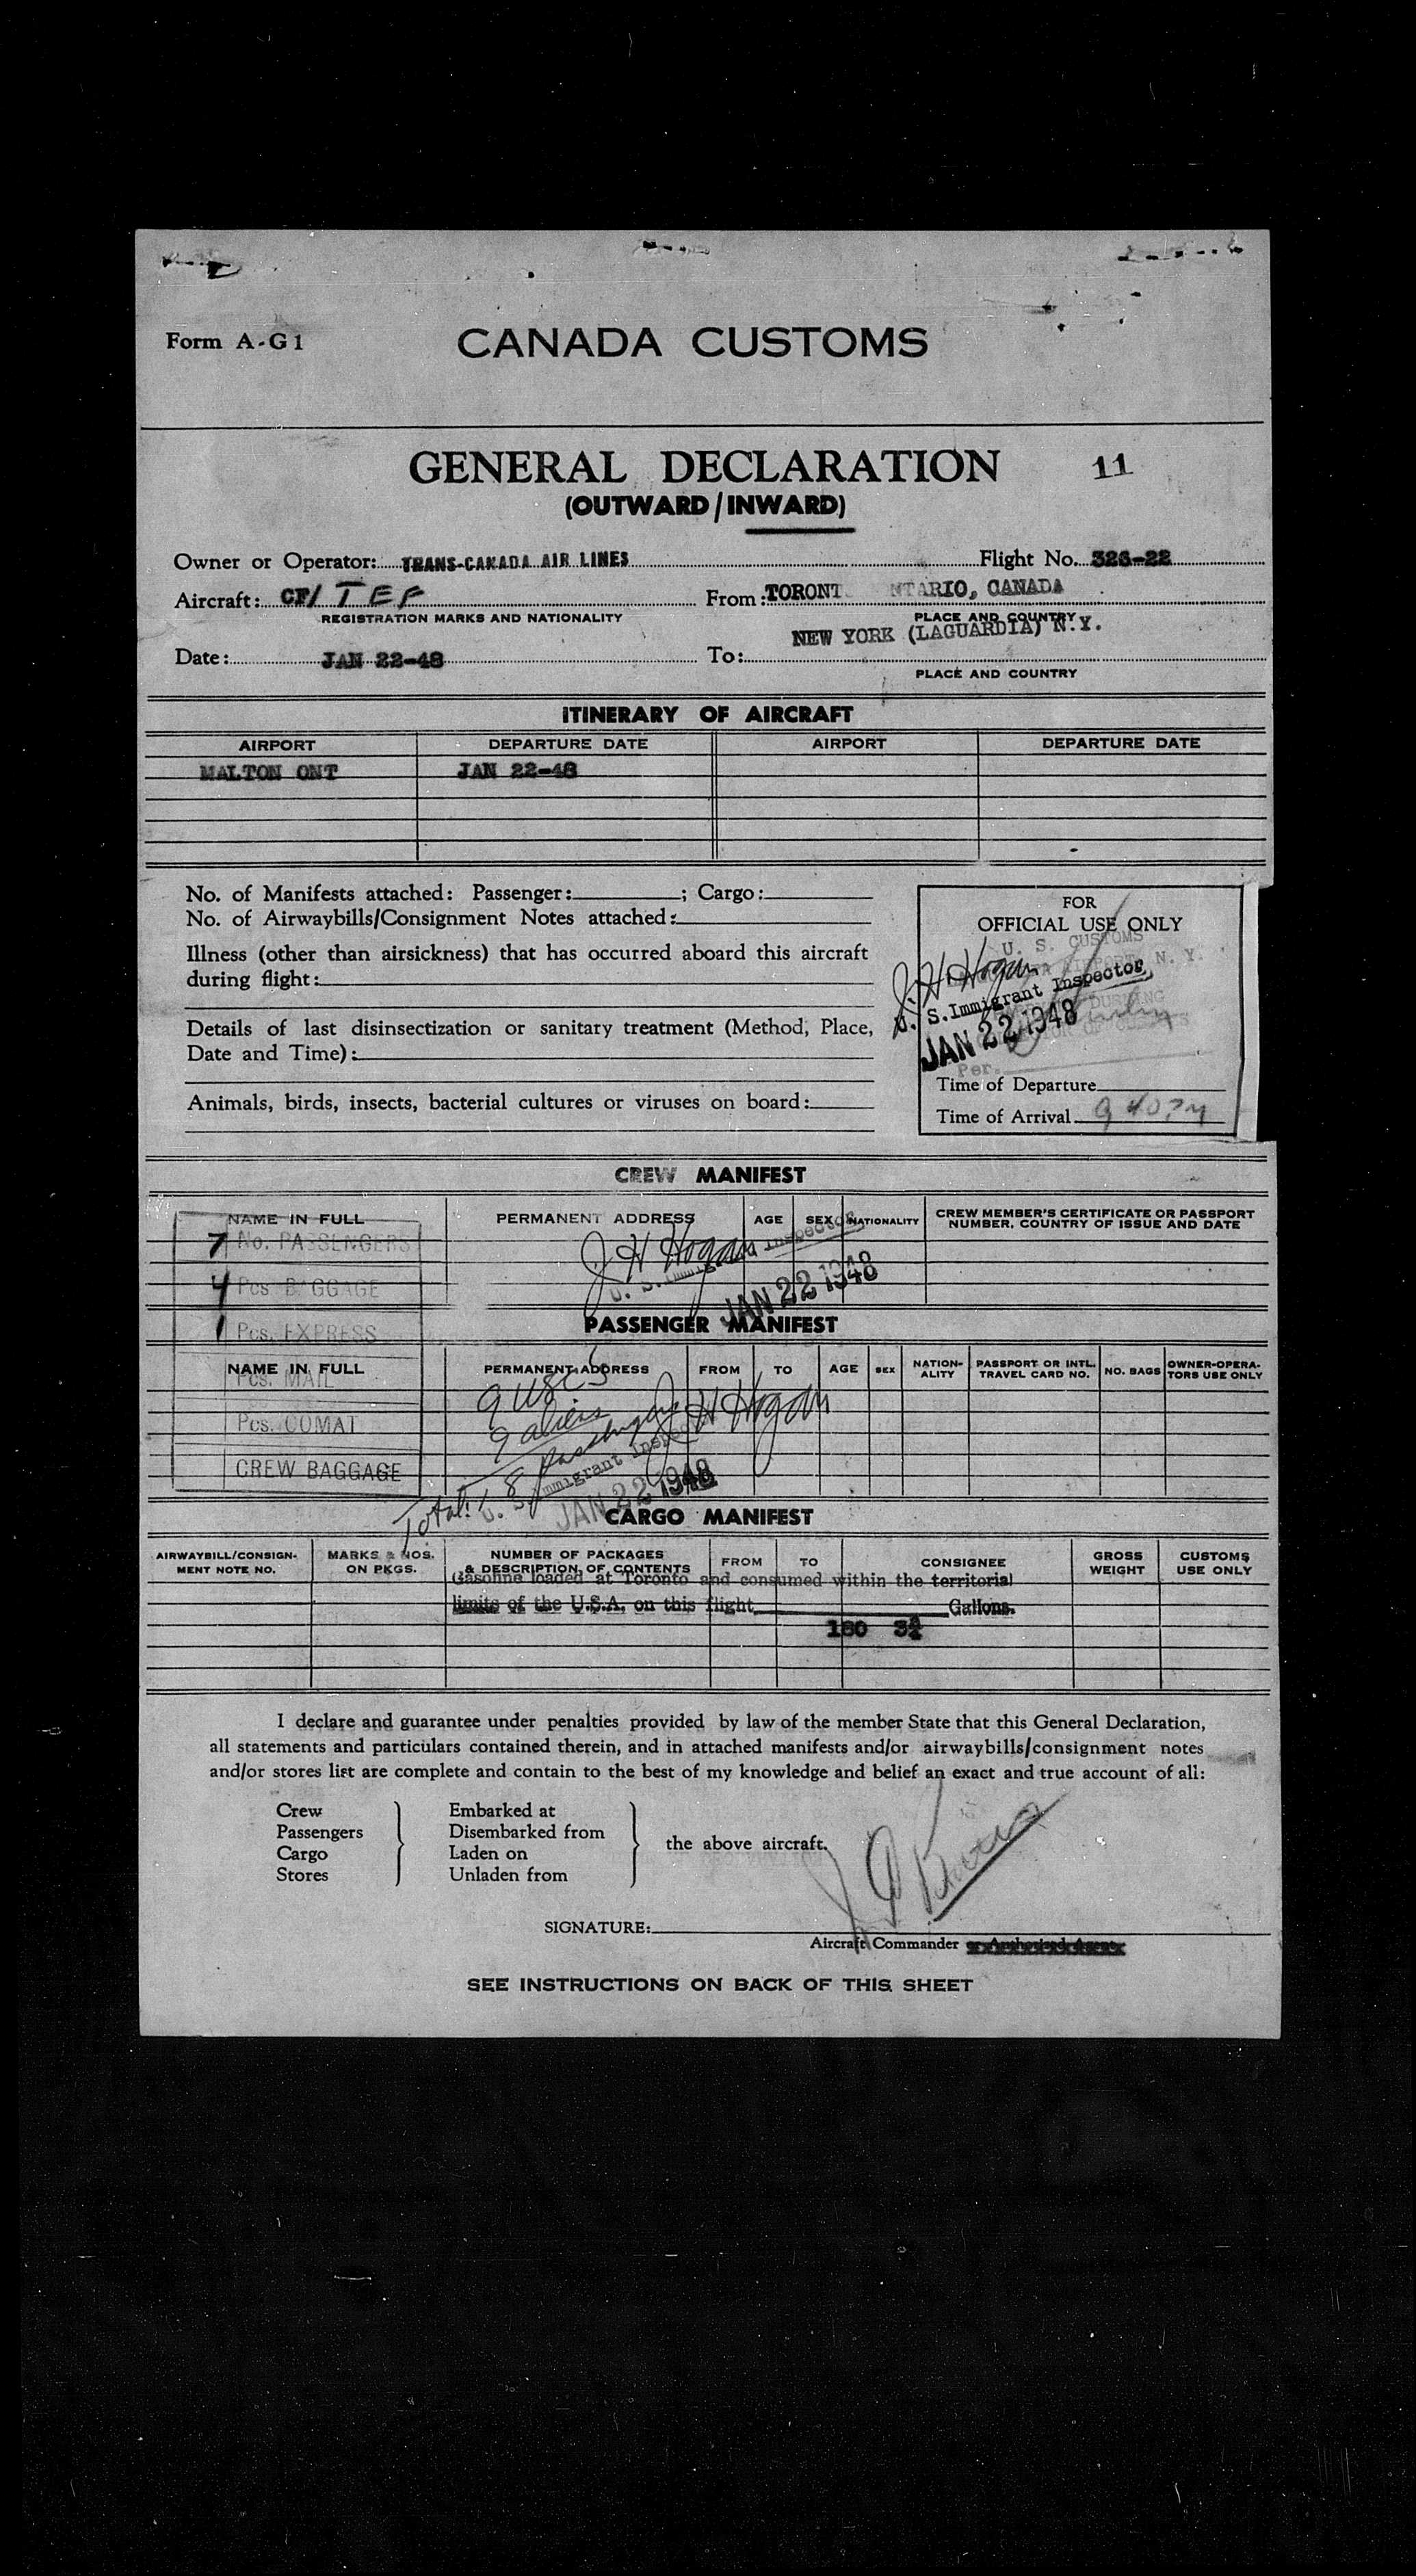 Form A-G1
CANADA CUSTOMS
GENERAL DECLARATION 11
(OUTWARD/INWARD)
Owner or Operator: TRANS-CANADA AIR LINES Flight No. 326-22
Aircraft: CF/ TEF From: TORONT NTARIO, CANADA
REGISTRATION MARKS AND NATIONALITY PLACE AND COUNTRY
NEW YORK (LAGUARDIA) N.Y.
Date: JAN 22-48 To:
PLACE AND COUNTRY
ITINERARY OF AIRCRAFT
AIRPORT DEPARTURE DATE AIRPORT DEPARTURE DATE
MALTON ONT JAN 22-48
No. of Manifests attached: Passenger: ; Cargo:
No. of Airwaybills/Consignment Notes attached:
Illness (other than airsickness) that has occurred aboard this aircraft
during flight:
Details of last disinsectization or sanitary treatment (Method, Place,
Date and Time):
Animals, birds, insects, bacterial cultures or viruses on board:
FOR
OFFICIAL USE ONLY
U. S. CUSTOMS
AIRPORT, N. Y.
J H Hogan
U. S. Immigrant Inspector
JAN 22 1948
Per.
Time of Departure
Time of Arrival 9 40 PM
CREW MANIFEST
NAME IN FULL PERMANENT ADDRESS AGE SEX NATIONALITY CREW MEMBER'S CERTIFICATE OR PASSPORT NUMBER, COUNTRY OF ISSUE AND DATE
7 No. PASSENGERS
4 Pcs BAGGAGE
1 Pcs. EXPRESS
J H Hogan
U. S. Immigrant Inspector
JAN 22 1948
PASSENGER MANIFEST
NAME IN FULL PERMANENT ADDRESS FROM TO AGE SEX NATIONALITY PASSPORT OR INTL. TRAVEL CARD NO. NO. BAGS OWNER-OPERATORS USE ONLY
Pcs. MAIL
Pcs. COMAT
CREW BAGGAGE
9 USCS
9 aliens
Total: 18 passengers
J H Hogan
U. S. Immigrant Inspector
JAN 22 1948
CARGO MANIFEST
AIRWAYBILL/CONSIGNMENT NOTE NO. MARKS & NOS. ON PKGS. NUMBER OF PACKAGES & DESCRIPTION OF CONTENTS FROM TO CONSIGNEE GROSS WEIGHT CUSTOMS USE ONLY
Gasoline loaded at Toronto and consumed within the territorial
limits of the U.S.A. on this flight Gallons.
180
I declare and guarantee under penalties provided by law of the member State that this General Declaration,
all statements and particulars contained therein, and in attached manifests and/or airwaybills/consignment notes
and/or stores list are complete and contain to the best of my knowledge and belief an exact and true account of all:
Crew Embarked at
Passengers Disembarked from
Cargo Laden on
Stores Unladen from
the above aircraft.
SIGNATURE:
Aircraft Commander or Authorized Agent
SEE INSTRUCTIONS ON BACK OF THIS SHEET